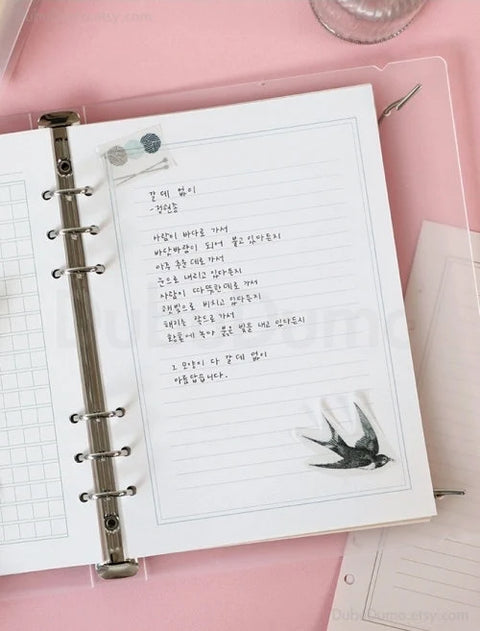 DubuDumo.etsy.com
갈 데 없이
-정현종
사람이 바다로 가서
바닷바람이 되어 불고 있다든지
아주 추운 데로 가서
눈으로 내리고 있다든지
사람이 따뜻한 데로 가서
햇빛으로 비치고 있다든지
해지는 쪽으로 가서
황혼에 녹아 붉은 빛을 내고 있다든지
그 모양이 다 갈 데 없이
아름답습니다.
DubuDumo
DubuDumo.etsy.com